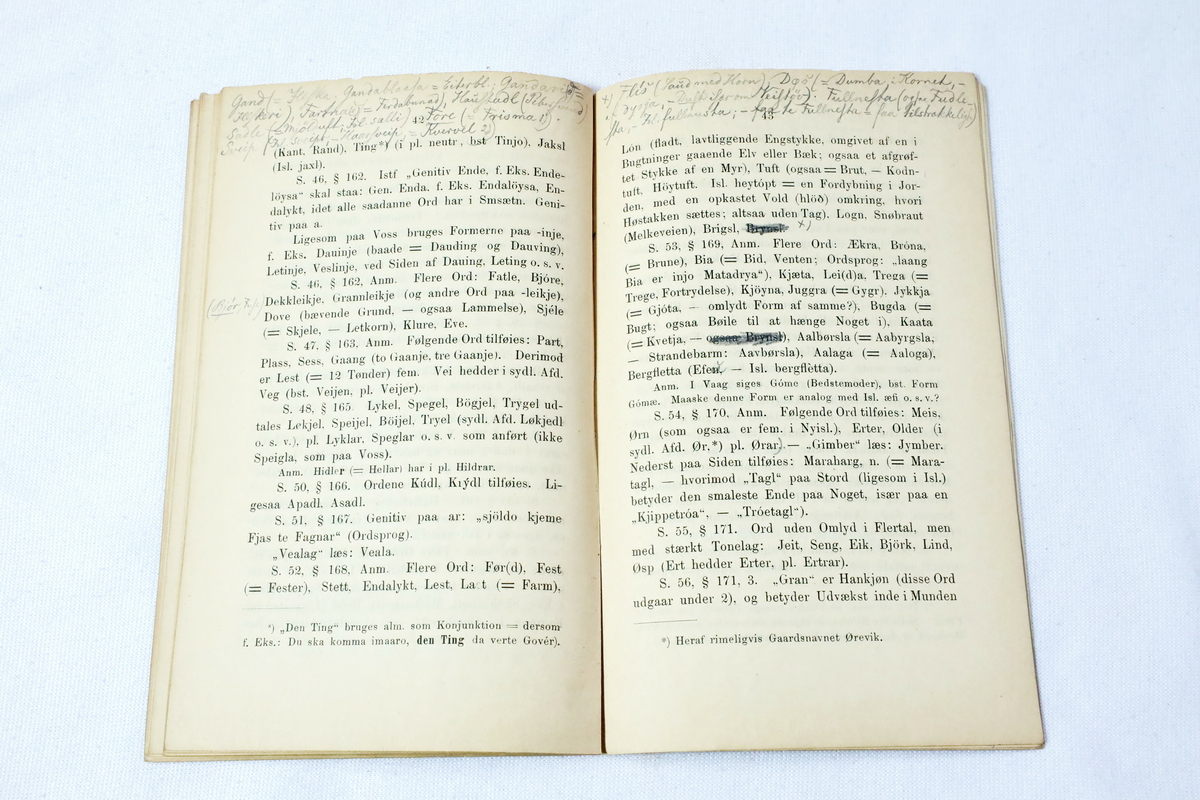 42
(Kant, Rand), Ting*) (i pl. neutr., bst Tinjo). Jaksl
(Isl. jaxl).
S. 46, § 162. Istf „Genitiv Ende, f. Eks. Ende-
löysa“ skal staa: Gen. Enda, f. Eks. Endalöysa, En-
dalykt, idet alle saadanne Ord har i Smsætn. Geni-
tiv paa a.
Ligesom paa Voss bruges Formerne paa -inje,
f. Eks. Dauinje (baade = Dauding og Dauving),
Letinje, Veslinje, ved Siden af Dauing, Leting o. s. v.
S. 46, § 162, Anm. Flere Ord: Fatle, Bjóre,
Dekkleikje, Grannleikje (og andre Ord paa -leikje),
Dove (bævende Grund, — ogsaa Lammelse), Sjéle
(= Skjele, — Letkorn), Klure, Eve.
S. 47, § 163. Anm. Følgende Ord tilføies: Part,
Plass, Sess, Gaang (to Gaanje, tre Gaanje). Derimod
er Lest (= 12 Tønder) fem. Vei hedder i sydl. Afd.
Veg (bst. Veijen, pl. Veijer).
S. 48, § 165. Lykel, Spegel, Bögjel, Trygel ud-
tales Lekjel, Speijel, Böijel, Tryel (sydl. Afd. Løkjedl
o. s. v.), pl. Lyklar, Speglar o. s. v. som anført (ikke
Speigla, som paa Voss).
Anm. Hidler (= Hellar) har i pl. Hildrar.
S. 50, § 166. Ordene Kúdl, Krýdl tilføies. Li-
gesaa Apadl, Asadl.
S. 51, § 167. Genitiv paa ar: „sjöldo kjeme
Fjas te Fagnar“ (Ordsprog).
„Vealag“ læs: Veala.
S. 52, § 168, Anm. Flere Ord: Før(d), Fest
(= Fester), Stett, Endalykt, Lest, Last (= Farm),
*) „Den Ting“ bruges alm. som Konjunktion = dersom
f. Eks.: Du ska komma imaaro, den Ting da verte Govér).
43
Lón (fladt, lavtliggende Engstykke, omgivet af en i
Bugtninger gaaende Elv eller Bæk; ogsaa et afgrøf-
tet Stykke af en Myr), Tuft (ogsaa = Brut, — Kodn-
tuft, Höytuft. Isl. heytópt = en Fordybning i Jor-
den, med en opkastet Vold (hlöð) omkring, hvori
Høstakken sættes; altsaa uden Tag). Logn. Snøbraut
(Melkeveien), Brigsl, Brynsl. x)
S. 53, § 169, Anm. Flere Ord: Ækra, Bróna,
(= Brune), Bia (= Bid, Venten; Ordsprog: „laang
Bia er injo Matadrya“), Kjæta, Lei(d)a, Trega (=
Trege, Fortrydelse), Kjöyna, Juggra (= Gygr). Jykkja
(= Gjóta, — omlydt Form af samme?), Bugda (=
Bugt; ogsaa Bøile til at hænge Noget i), Kaata
(= Kvetja, — ogsaa Brynsl), Aalbørsla (= Aabyrgsla,
— Strandebarm: Aavbørsla), Aalaga (= Aaloga),
Bergfletta (Efeu. — Isl. bergflètta).
Anm. I Vaag siges Góme (Bedstemoder), bst. Form
Gómæ. Maaske denne Form er analog med Isl. æfi o. s. v.?
S. 54, § 170, Anm. Følgende Ord tilføies: Meis,
Ørn (som ogsaa er fem. i Nyisl.), Erter, Older (i
sydl. Afd. Ør,*) pl. Ørar). — „Gimber“ læs: Jymber.
Nederst paa Siden tilføies: Maraharg, n. (= Mara-
tagl, — hvorimod „Tagl“ paa Stord (ligesom i Isl.)
betyder den smaleste Ende paa Noget, især paa en
„Kjippetróa“, — „Tróetagl“).
S. 55, § 171. Ord uden Omlyd i Flertal, men
med stærkt Tonelag: Jeit, Seng, Eik, Björk, Lind,
Øsp (Ert hedder Erter, pl. Ertrar).
S. 56, § 171, 3. „Gran“ er Hankjøn (disse Ord
udgaar under 2), og betyder Udvækst inde i Munden
*) Heraf rimeligvis Gaardsnavnet Ørevik.